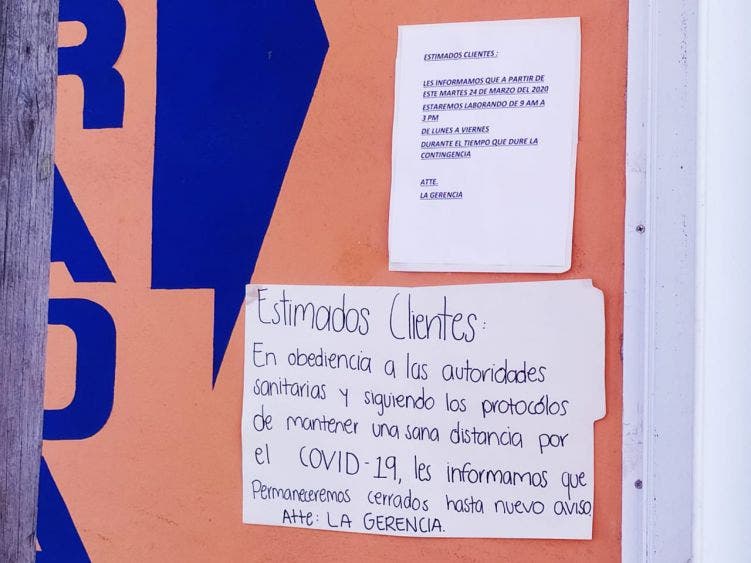 R
A
D
A
ESTIMADOS CLIENTES :
LES INFORMAMOS QUE A PARTIR DE
ESTE MARTES 24 DE MARZO DEL 2020
ESTAREMOS LABORANDO DE 9 AM A
3 PM
DE LUNES A VIERNES
DURANTE EL TIEMPO QUE DURE LA
CONTINGENCIA
ATTE.
LA GERENCIA
Estimados Clientes:
En obediencia a las autoridades
sanitarias y siguiendo los protocólos
de mantener una sana distancia por
el COVID-19, les informamos que
Permaneceremos cerrados hasta nuevo aviso.
Atte: LA GERENCIA.